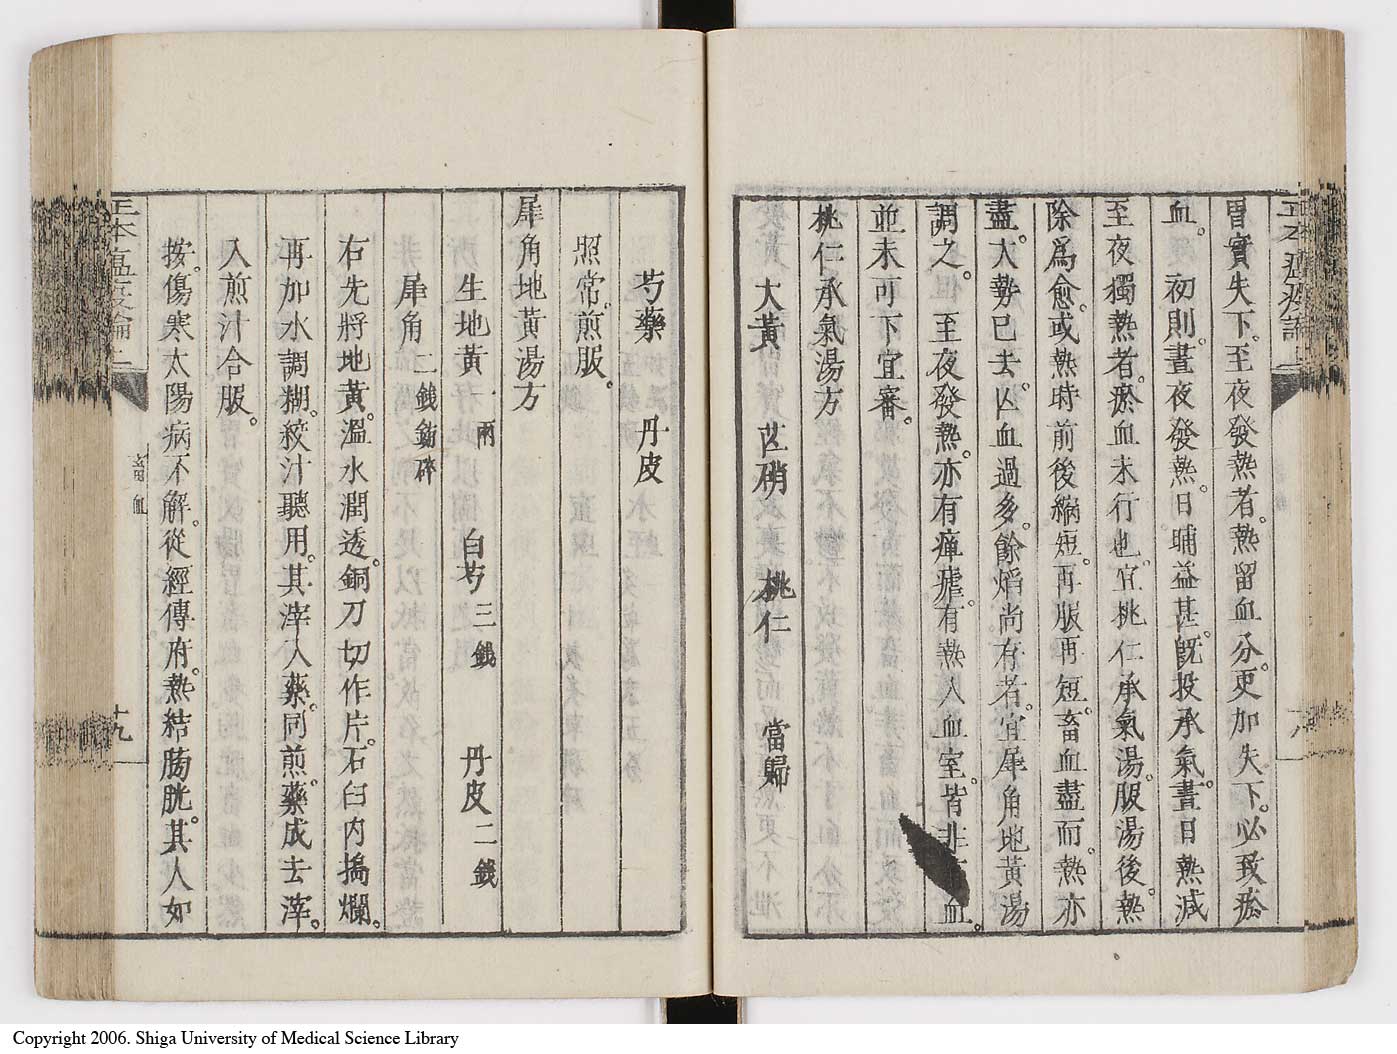 胃實失下。至夜發熱者。熱留血分。更加失下。必致瘀
血。初則晝夜發熱。日晡益甚。既投承氣。晝日熱減
至夜獨熱者。瘀血未行也。宜桃仁承氣湯。服湯後。熱
除爲愈。或熱時前後縮短。再服再短。畜血盡而熱亦
盡。大勢已去。亾血過多。餘焰尚有者。宜犀角地黃湯
調之。至夜發熱。亦有癉瘧。有熱入血室。皆非 血。
並未可下宜審。
桃仁承氣湯方
大黃 芒硝 桃仁 當歸
芍藥 丹皮
照常。煎服。
犀角地黃湯方
生地黃一兩 白芍三錢 丹皮二錢
犀角二錢鎊碎
右先將地黃。溫水潤透。銅刀切作片。石臼内搗爛。
再加水調糊。絞汁聽用。其滓入藥。同煎。藥成去滓。
入煎汁合服。
按。傷寒太陽病不解。從經傳府。熱結膀胱。其人如
畜血
十九
Copyright 2006. Shiga University of Medical Science Library